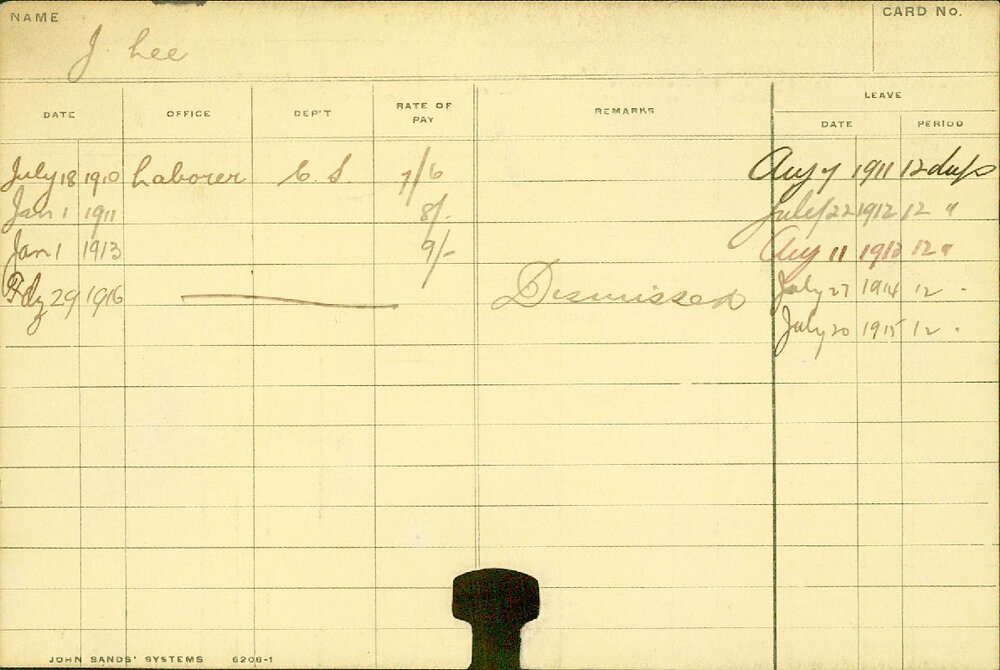 NAME J Lee CARD No.
LEAVE
DATE OFFICE DEP'T RATE OF PAY REMARKS DATE PERIOD
July 18 1910 Laborer C. S 7/6 Aug 7 1911 12 days
Jan 1 1911 8/- July 22 1912 12 "
Jan 1 1913 9/- Aug 11 1913 12 "
29 1916 Dismissed July 27 1914 12 "
July 20 1915 12 "
JOHN SANDS' SYSTEMS 6206-1